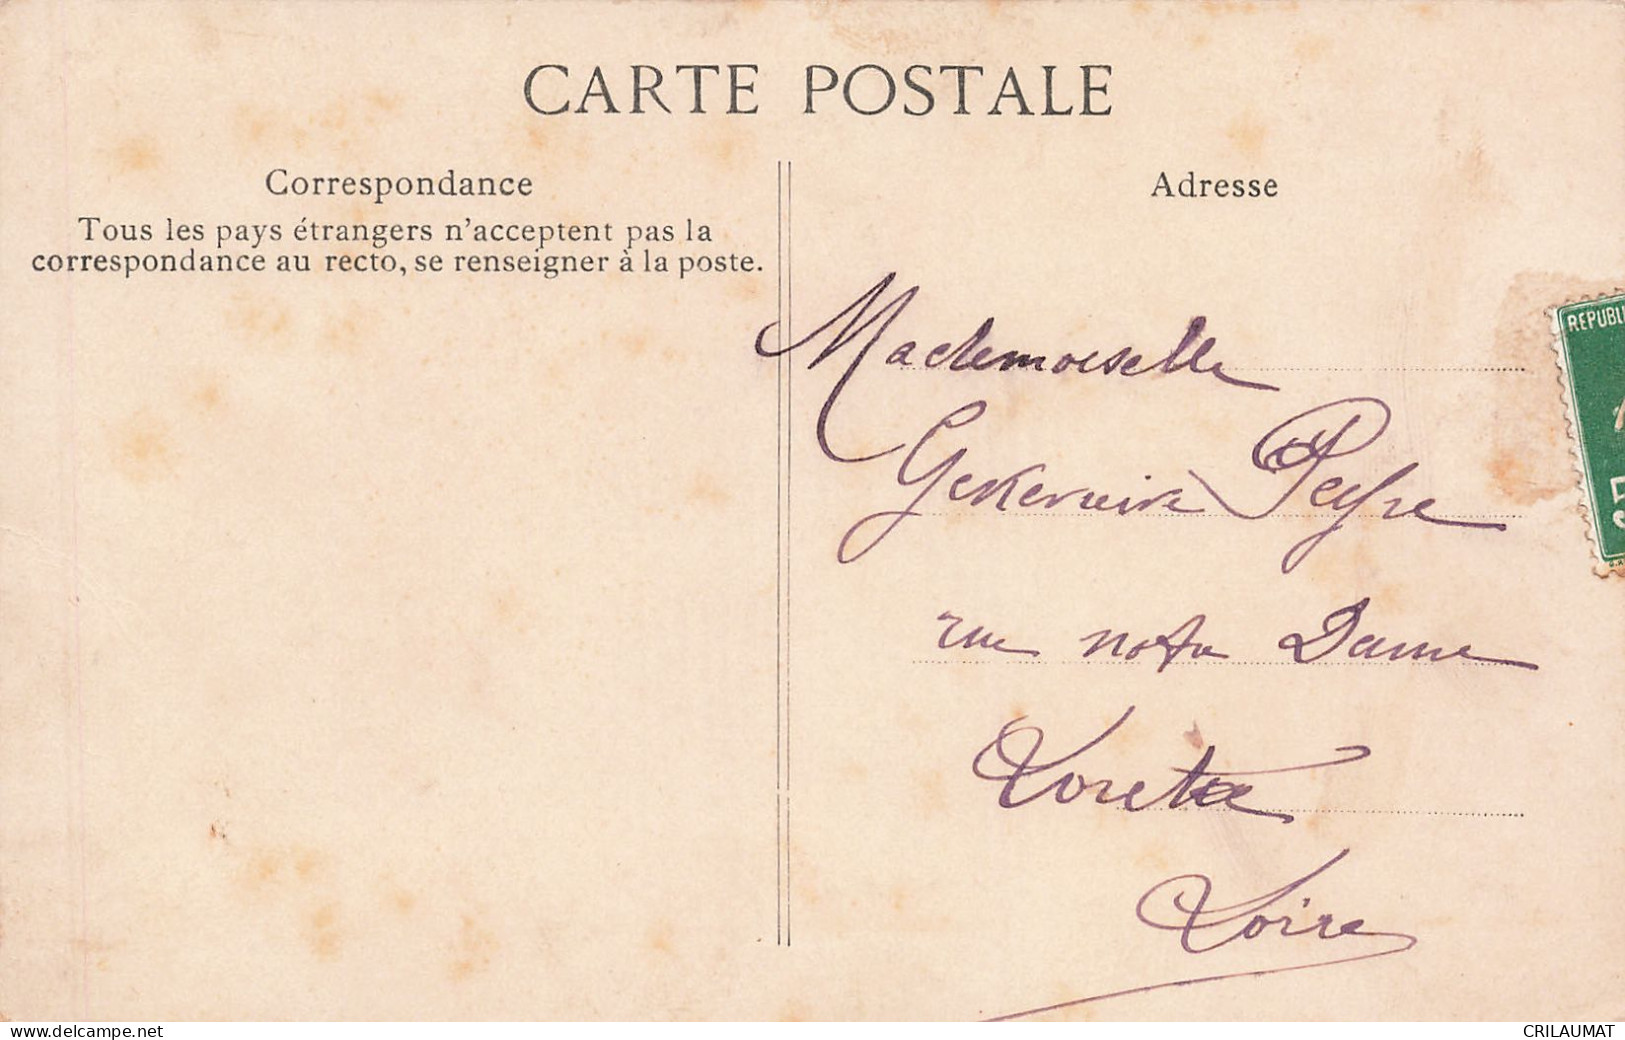 CARTE POSTALE
Correspondance
Tous les pays étrangers n'acceptent pas la
correspondance au recto, se renseigner à la poste.
Adresse
Mademoiselle
Genevieve Peyre
rue notre Dame
Lorette
Loire
REPUBLI
5
www.delcampe.net
CRILAUMAT